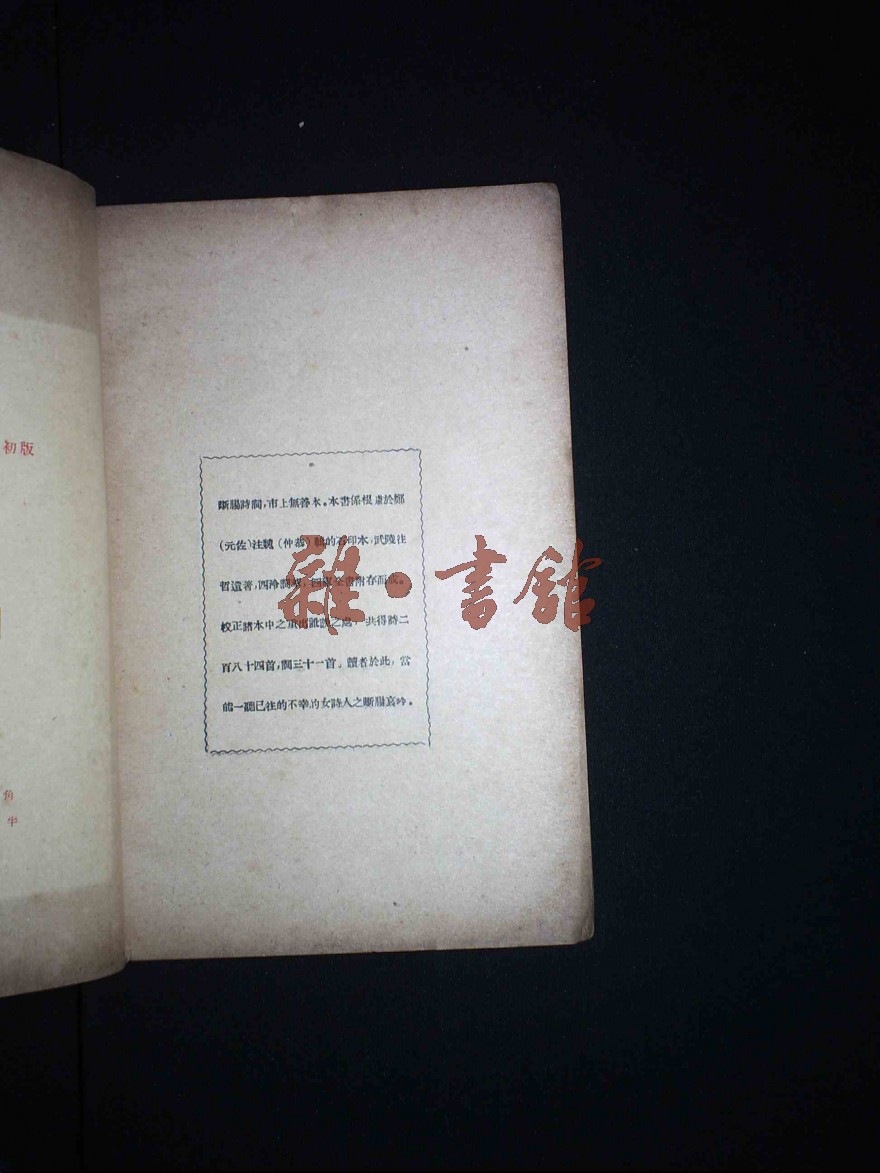 初版
角
半
斷腸詩詞，市上無善本。本書係根據於鄭
（元佐）注魏（仲恭）輯的石印本，武陵往
哲遺著，四冷詞萃，四庫全書附存而成。
校正諸本中之訛誤之處，共得詩二
百八十四首，詞三十一首，讀者於此，當
能一聽已往的不幸的女詩人之斷腸哀吟。
雜·書館